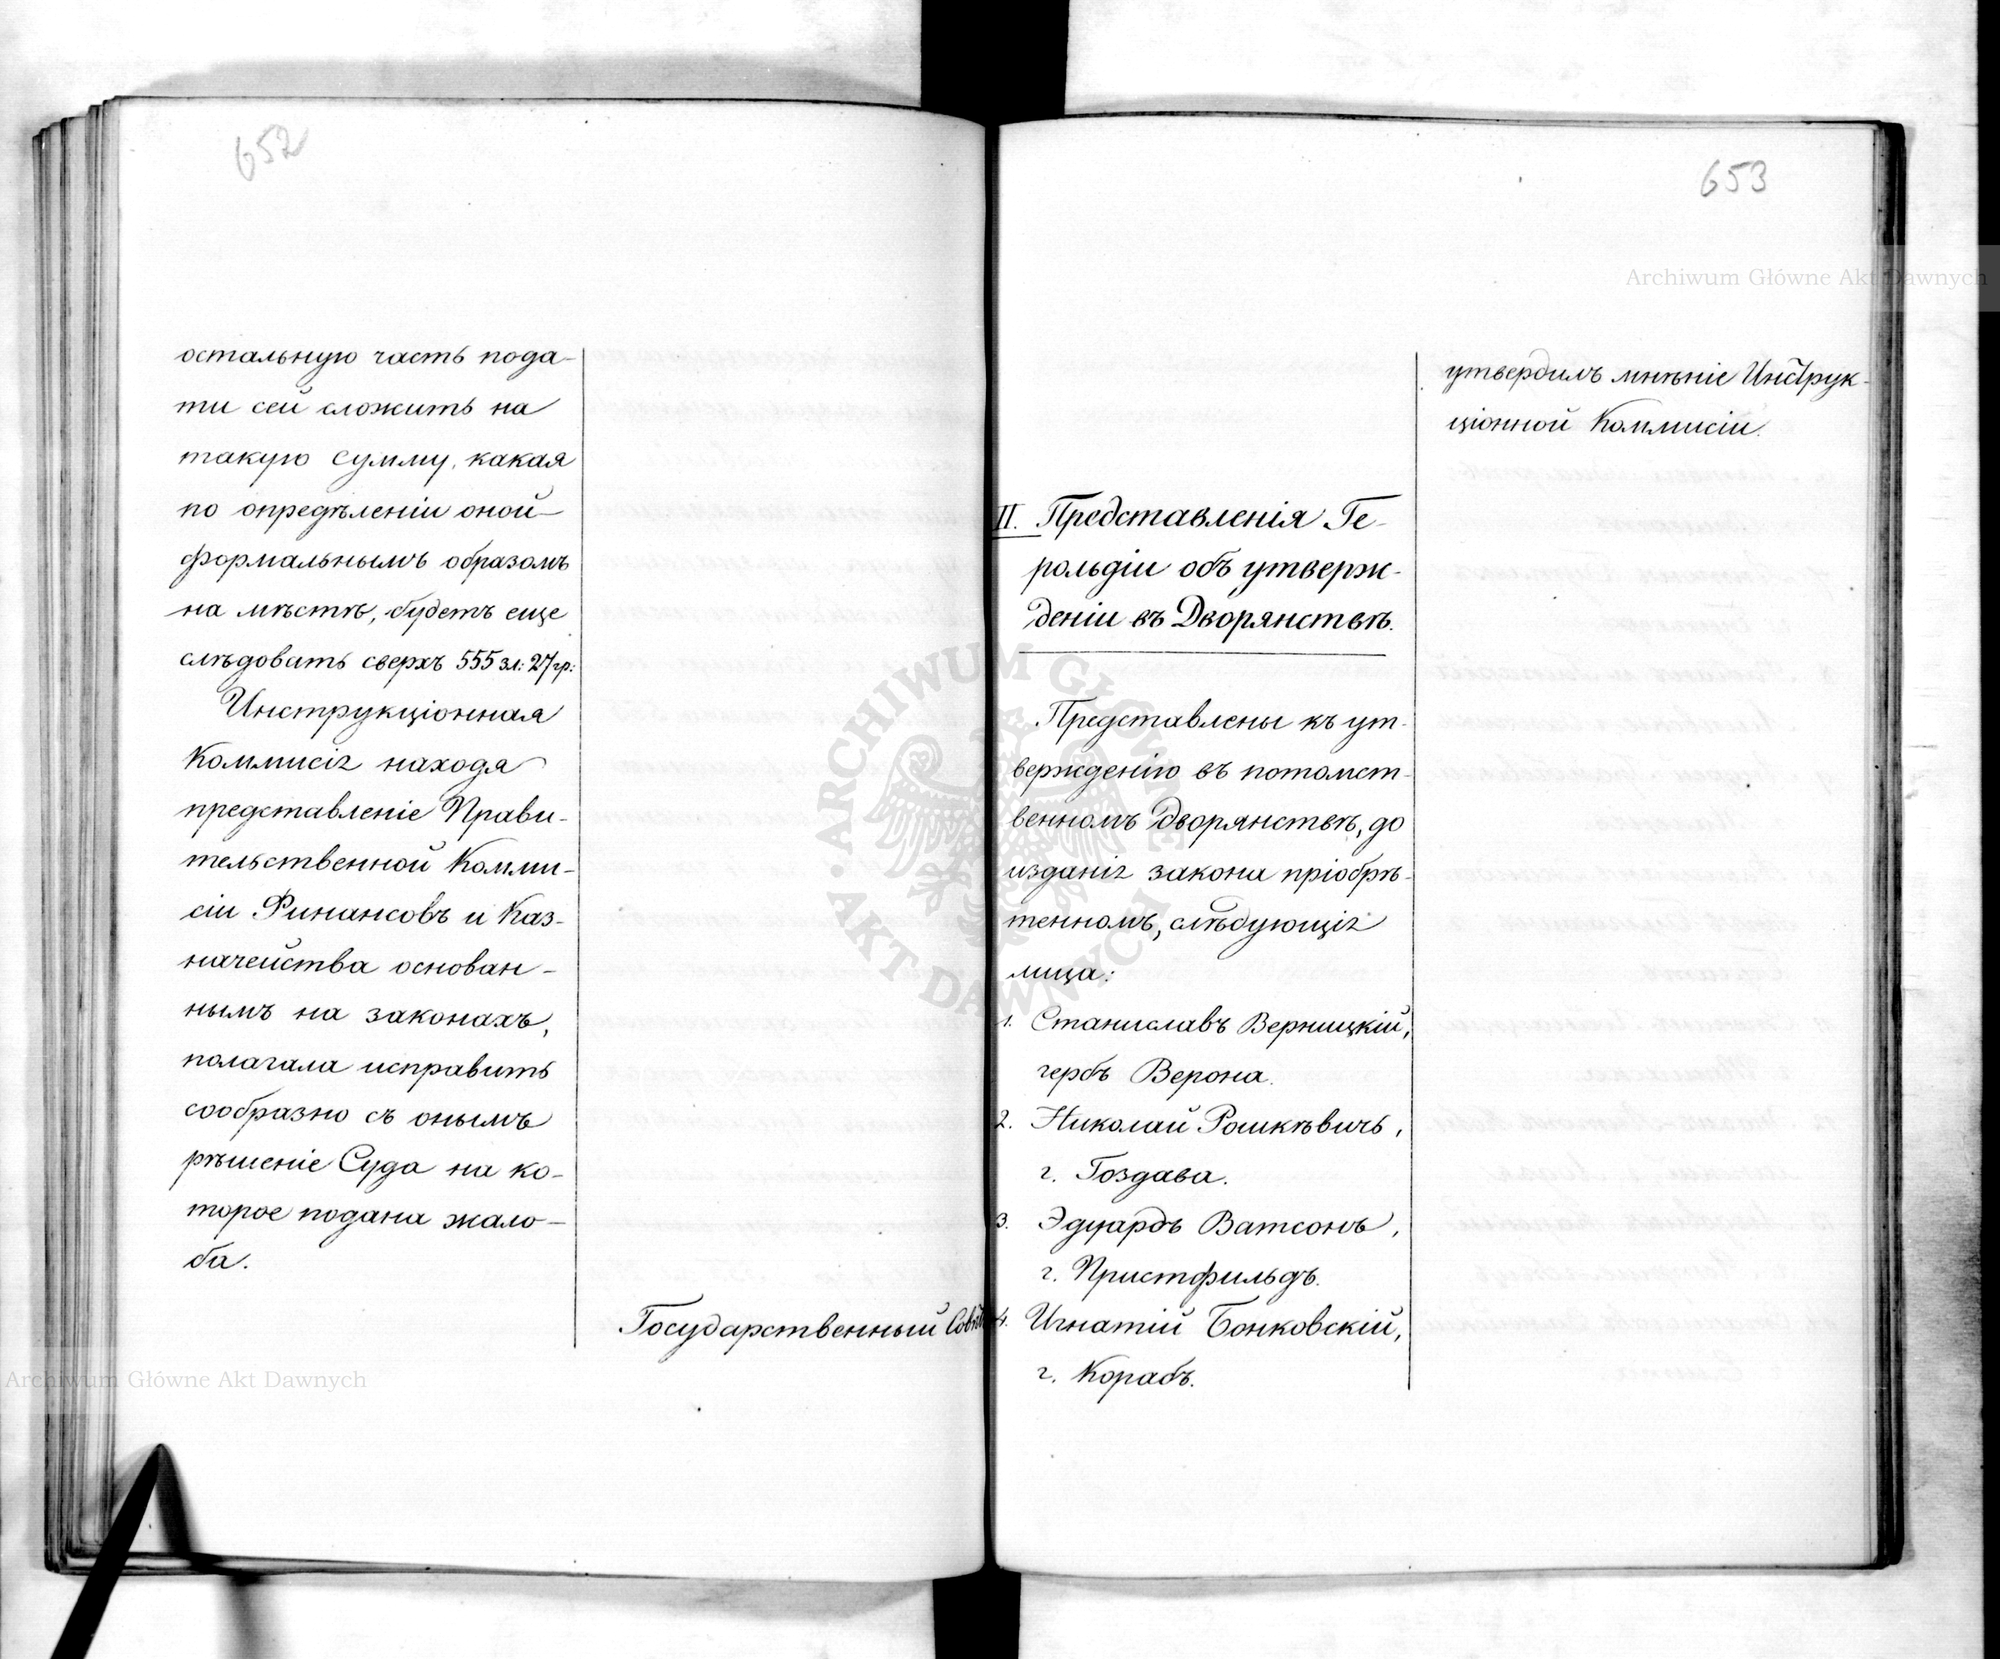 652
остальную часть пода-
ти сей сложить на
такую сумму, какая
по опредѣленіи оной
формальнымъ образомъ
на мѣстѣ, будетъ еще
слѣдовать сверхъ 555 зл: 27 гр:
Инструкціонная
Коммисія находя
представленіе Прави-
тельственной Комми-
сіи Финансовъ и Каз-
начейства основан-
нымъ на законахъ,
полагала исправить
сообразно съ онымъ
рѣшеніе Суда на ко-
торое подана жало-
ба.
Государственный Совѣтъ
653
утвердилъ мнѣніе Инструк-
ціонной Коммисіи.
II. Представленія Ге-
рольдіи объ утверж-
деніи въ Дворянствѣ.
Представлены къ ут-
вержденію въ потомст-
венномъ Дворянствѣ, до
изданія закона пріобрѣ-
тенномъ, слѣдующія
лица:
1. Станиславъ Верницкій,
гербъ Верона.
2. Николай Рошкѣвичъ,
г. Гоздава.
3. Эдуардъ Ватсонъ,
г. Пристфильдъ.
4. Игнатій Бонковскій,
г. Корабъ.
ARCHIWUM GŁÓWNE AKT DAWNYCH
Archiwum Główne Akt Dawnych
Archiwum Główne Akt Dawnych